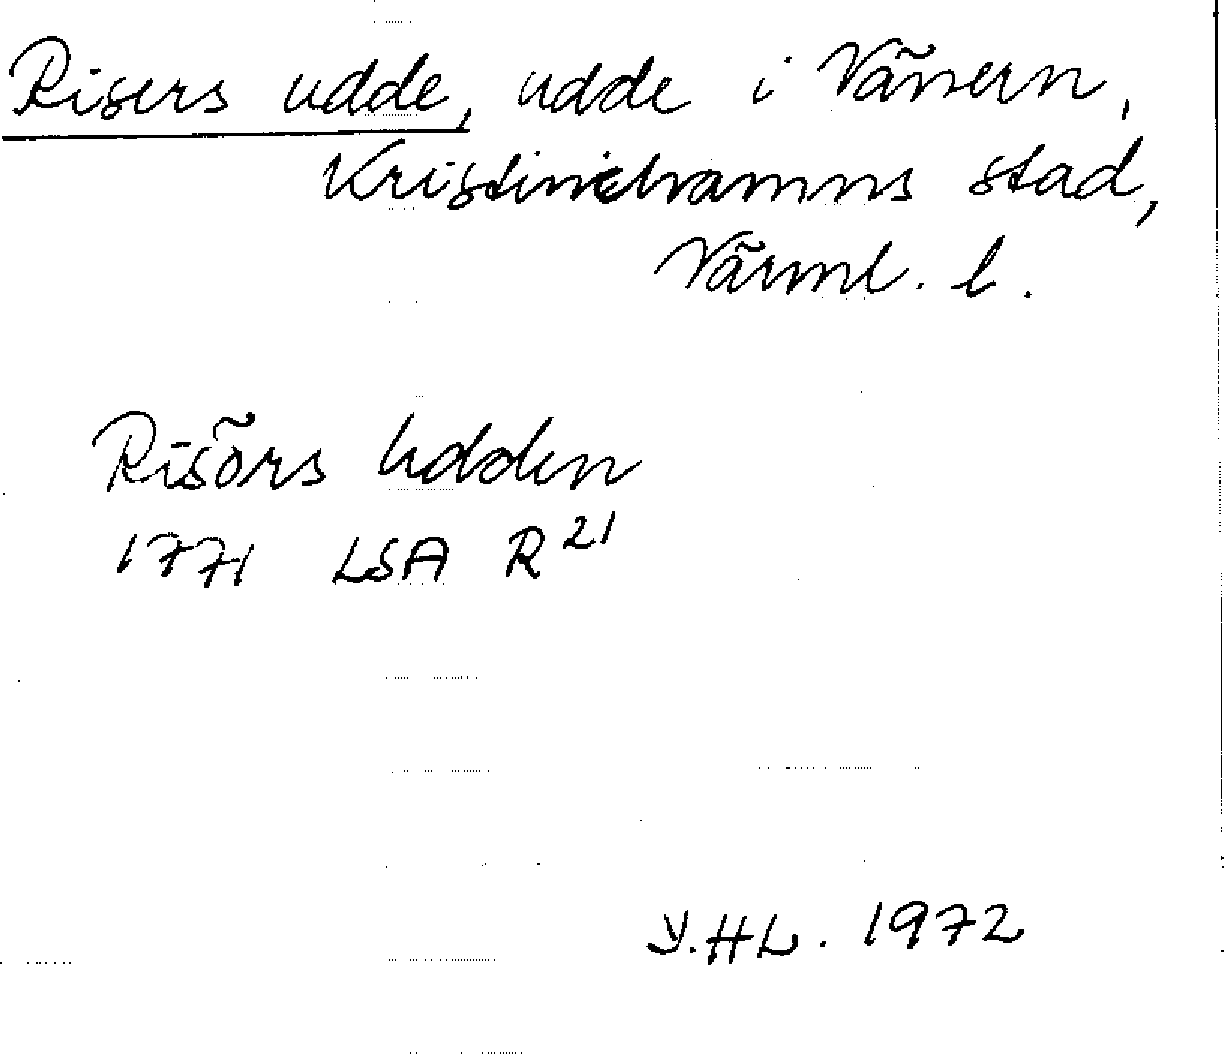 Risers udde, udde i Vänern,
Kristinehamns stad,
Värml. l.
Risörs Udden
1771 LSA R 21
Y.HL. 1972